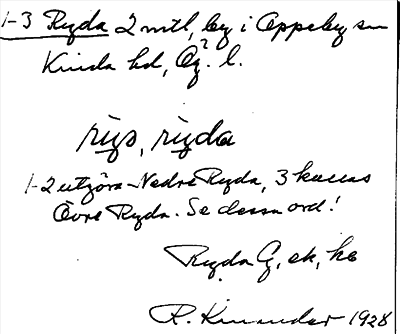 1-3 Ryda 2 mtl, by i Oppeby sn
Kinda hd, Ög. l.
rygo, ryda
1-2 utgöra Nedre Ryda, 3 kallas
Övre Ryda. Se dessa ord!
Ryda G, ek, hs
R. Kinander 1928